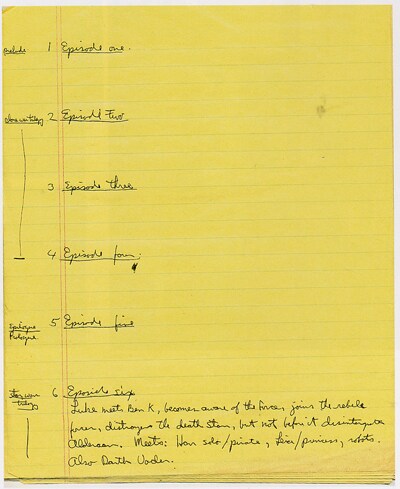 prelude 1 Episode one.
clone wars trilogy 2 Episode Two
3 Episode three
4 Episode four.
Epilogue
Prologue 5 Episode five
Star wars
trilogy 6 Eposicle six
Luke meets Ben K, becomes aware of the force, joins the rebels
forces, distroyes the death star, but not before it disintigrates
Alderaan. Meets: Han solo/pirate, Leia/princess, robots.
Also Darth Vader.